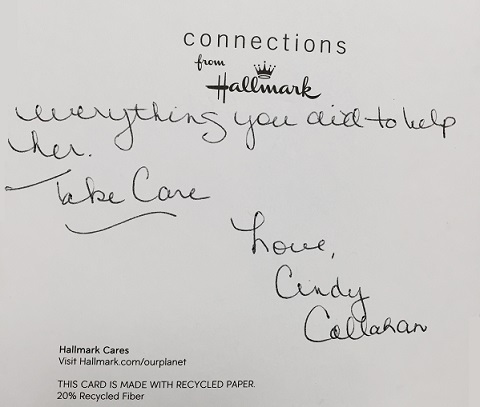 connections
from
Hallmark
everything you did to help
her.
Take Care
Love,
Cindy
Callahan
Hallmark Cares
Visit Hallmark.com/ourplanet
THIS CARD IS MADE WITH RECYCLED PAPER.
20% Recycled Fiber